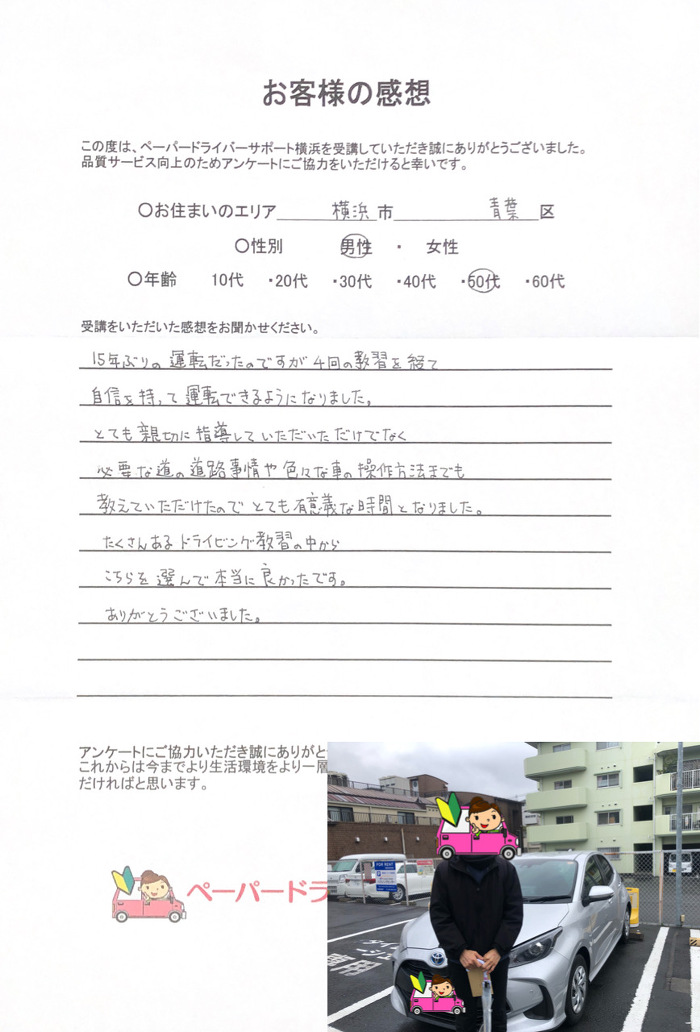 お客様の感想
この度は、ペーパードライバーサポート横浜を受講していただき誠にありがとうございました。
品質サービス向上のためアンケートにご協力をいただけると幸いです。
〇お住まいのエリア 横浜 市 青葉 区
〇性別 男性 ・ 女性
〇年齢 10代 ・20代 ・30代 ・40代 ・50代 ・60代
受講をいただいた感想をお聞かせください。
15年ぶりの運転だったのですが4回の教習を経て
自信を持って運転できるようになりました。
とても親切に指導していただいただけでなく
必要な道の道路事情や色々な車の操作方法までも
教えていただけたのでとても有意義な時間となりました。
たくさんあるドライビング教習の中から
こちらを選んで本当に良かったです。
ありがとうございました。
アンケートにご協力いただき誠にありがと
これからは今までより生活環境をより一層
だければと思います。
ペーパードラ
FOR RENT
専用